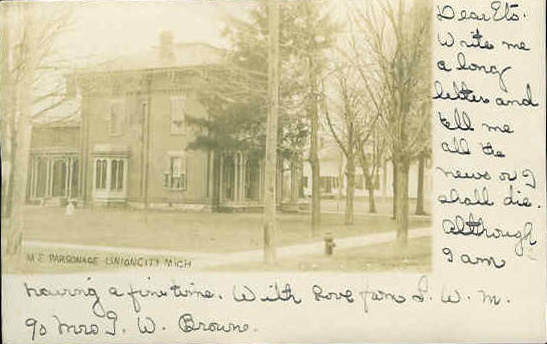 Dear Ets.
Write me
a long
letter and
tell me
all the
news or I
shall die.
Although
I am
M E PARSONAGE UNION CITY MICH
having a fine time. With Love from S. W. M.
% Mrs G. W. Browne.